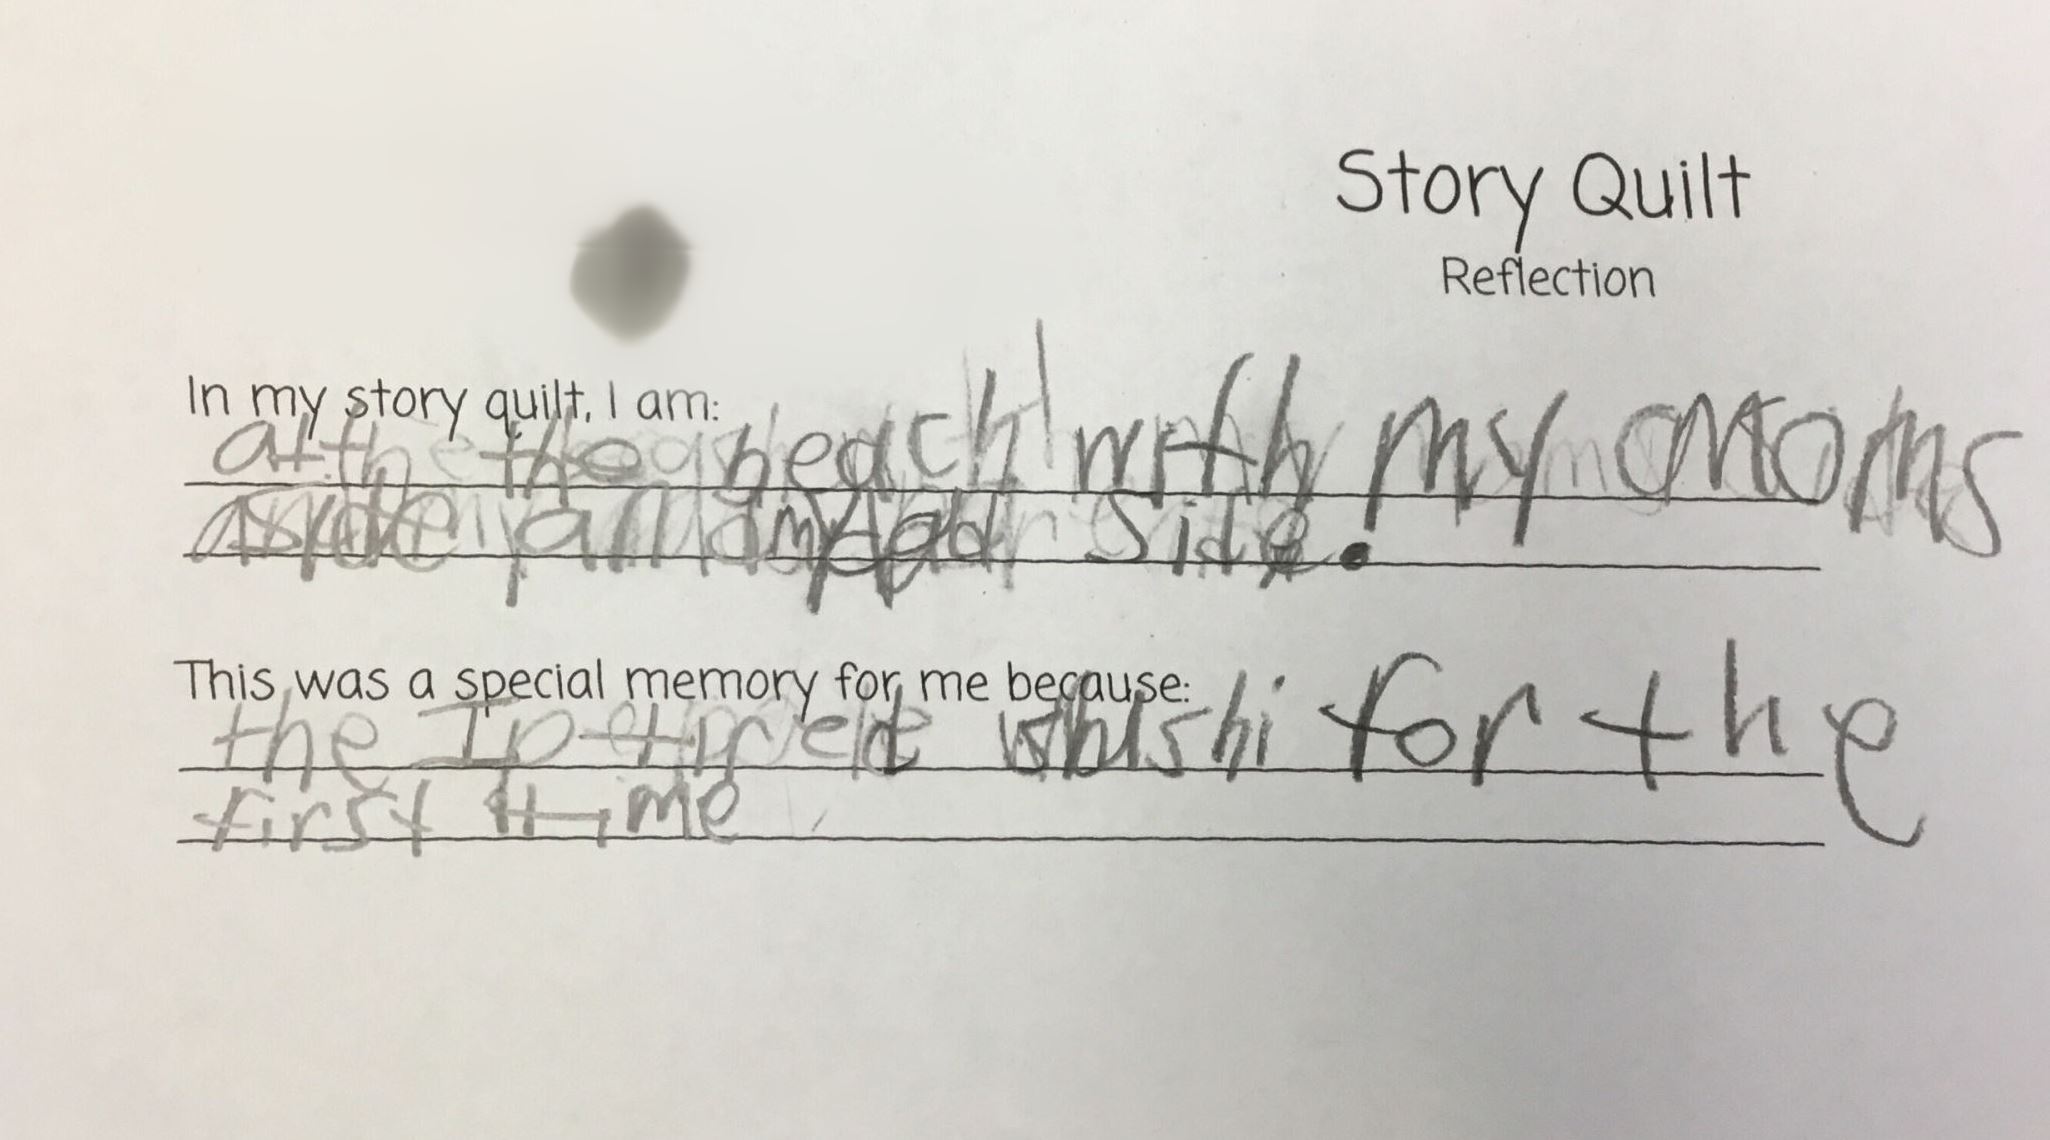 Story Quilt
Reflection
In my story quilt, I am:
at the beach with my Moms
side and my dad side.
This was a special memory for me because:
the I for the
first time